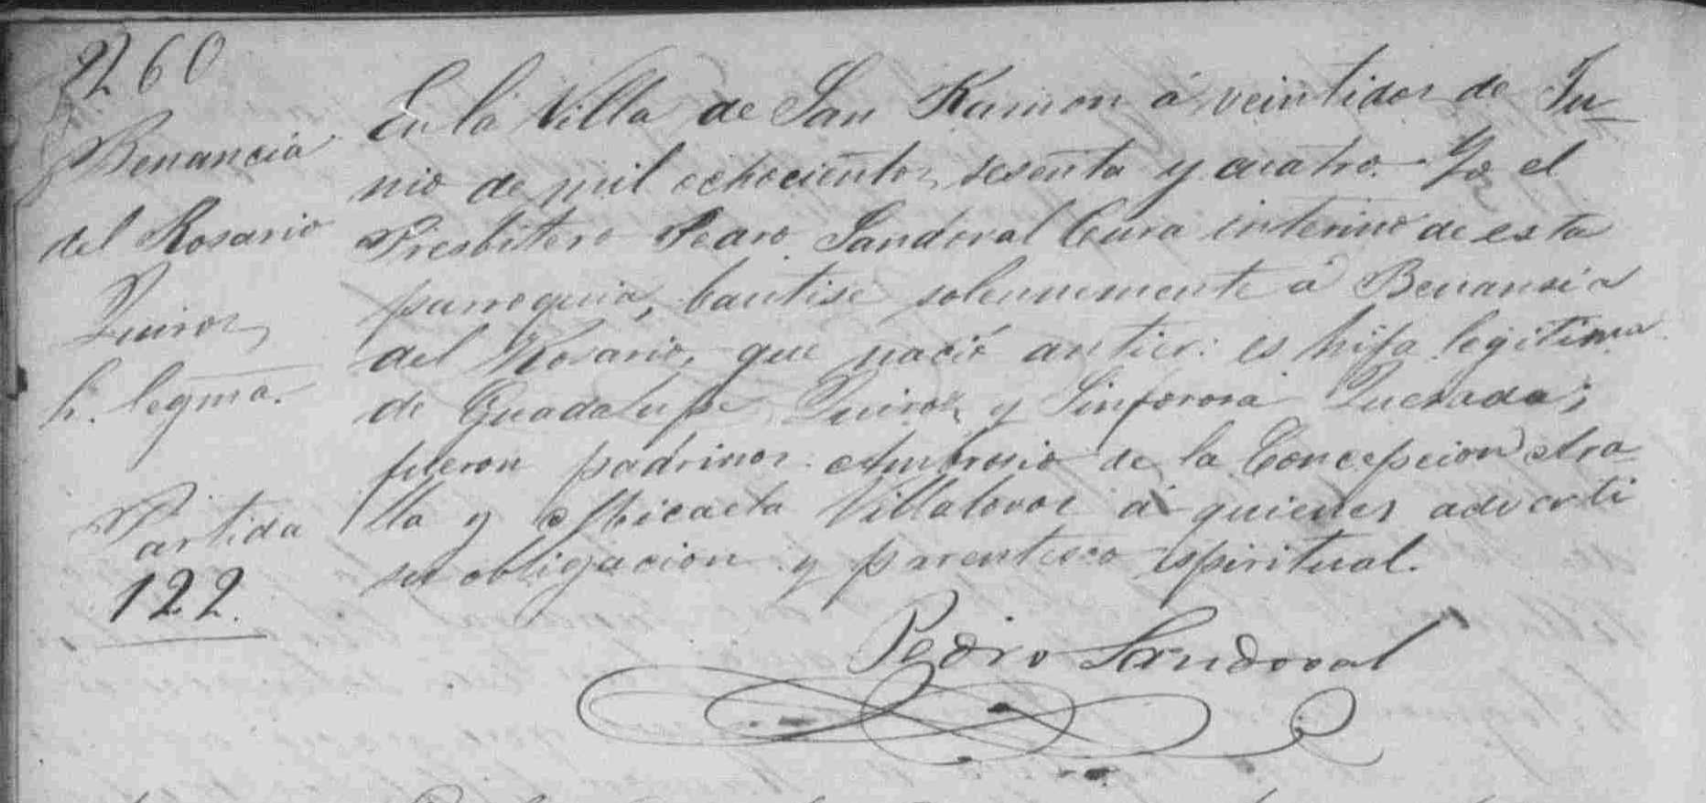 260
Benancia
del Rosario
Quiros
h. legma.
Partida
122.
En la Villa de San Ramon á veintidos de Ju-
nio de mil ochocientos sesenta y cuatro. Yo el
Presbitero Pedro Sandoval Cura interino de esta
parroquia, bautisé solennemente á Benansia
del Rosario, que nació antier: es hija legitima
de Guadalupe Quiros y Sinforosa Quesada;
fueron padrinos Ambrosio de la Concepcion
y Micaela Villalovos á quienes adverti
su obligacion y parentesco espiritual.
Pedro Sandoval